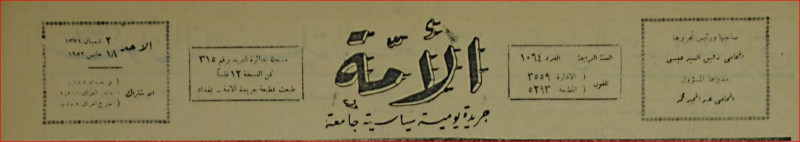 صاحبها ورئيس تحريرها
المحامي رئيس السيد عيسى
مديرها المسؤول
المحامي عبد المجيد محمد
السنة الرابعة العدد ١٠٦٤
تلفون
الادارة ٣٥٥٩
المطبعة ٥٢٩٣
الأمة
جريدة يومية سياسية جامعة
مسجلة بدائرة البريد برقم ٣١٥
ثمن النسخة ١٢ فلساً
طبعت بمطبعة جريدة الامة - بغداد
الاحد
٢ شعبان ١٣٧١
١٨ مايس ١٩٥٢
الاشتراك